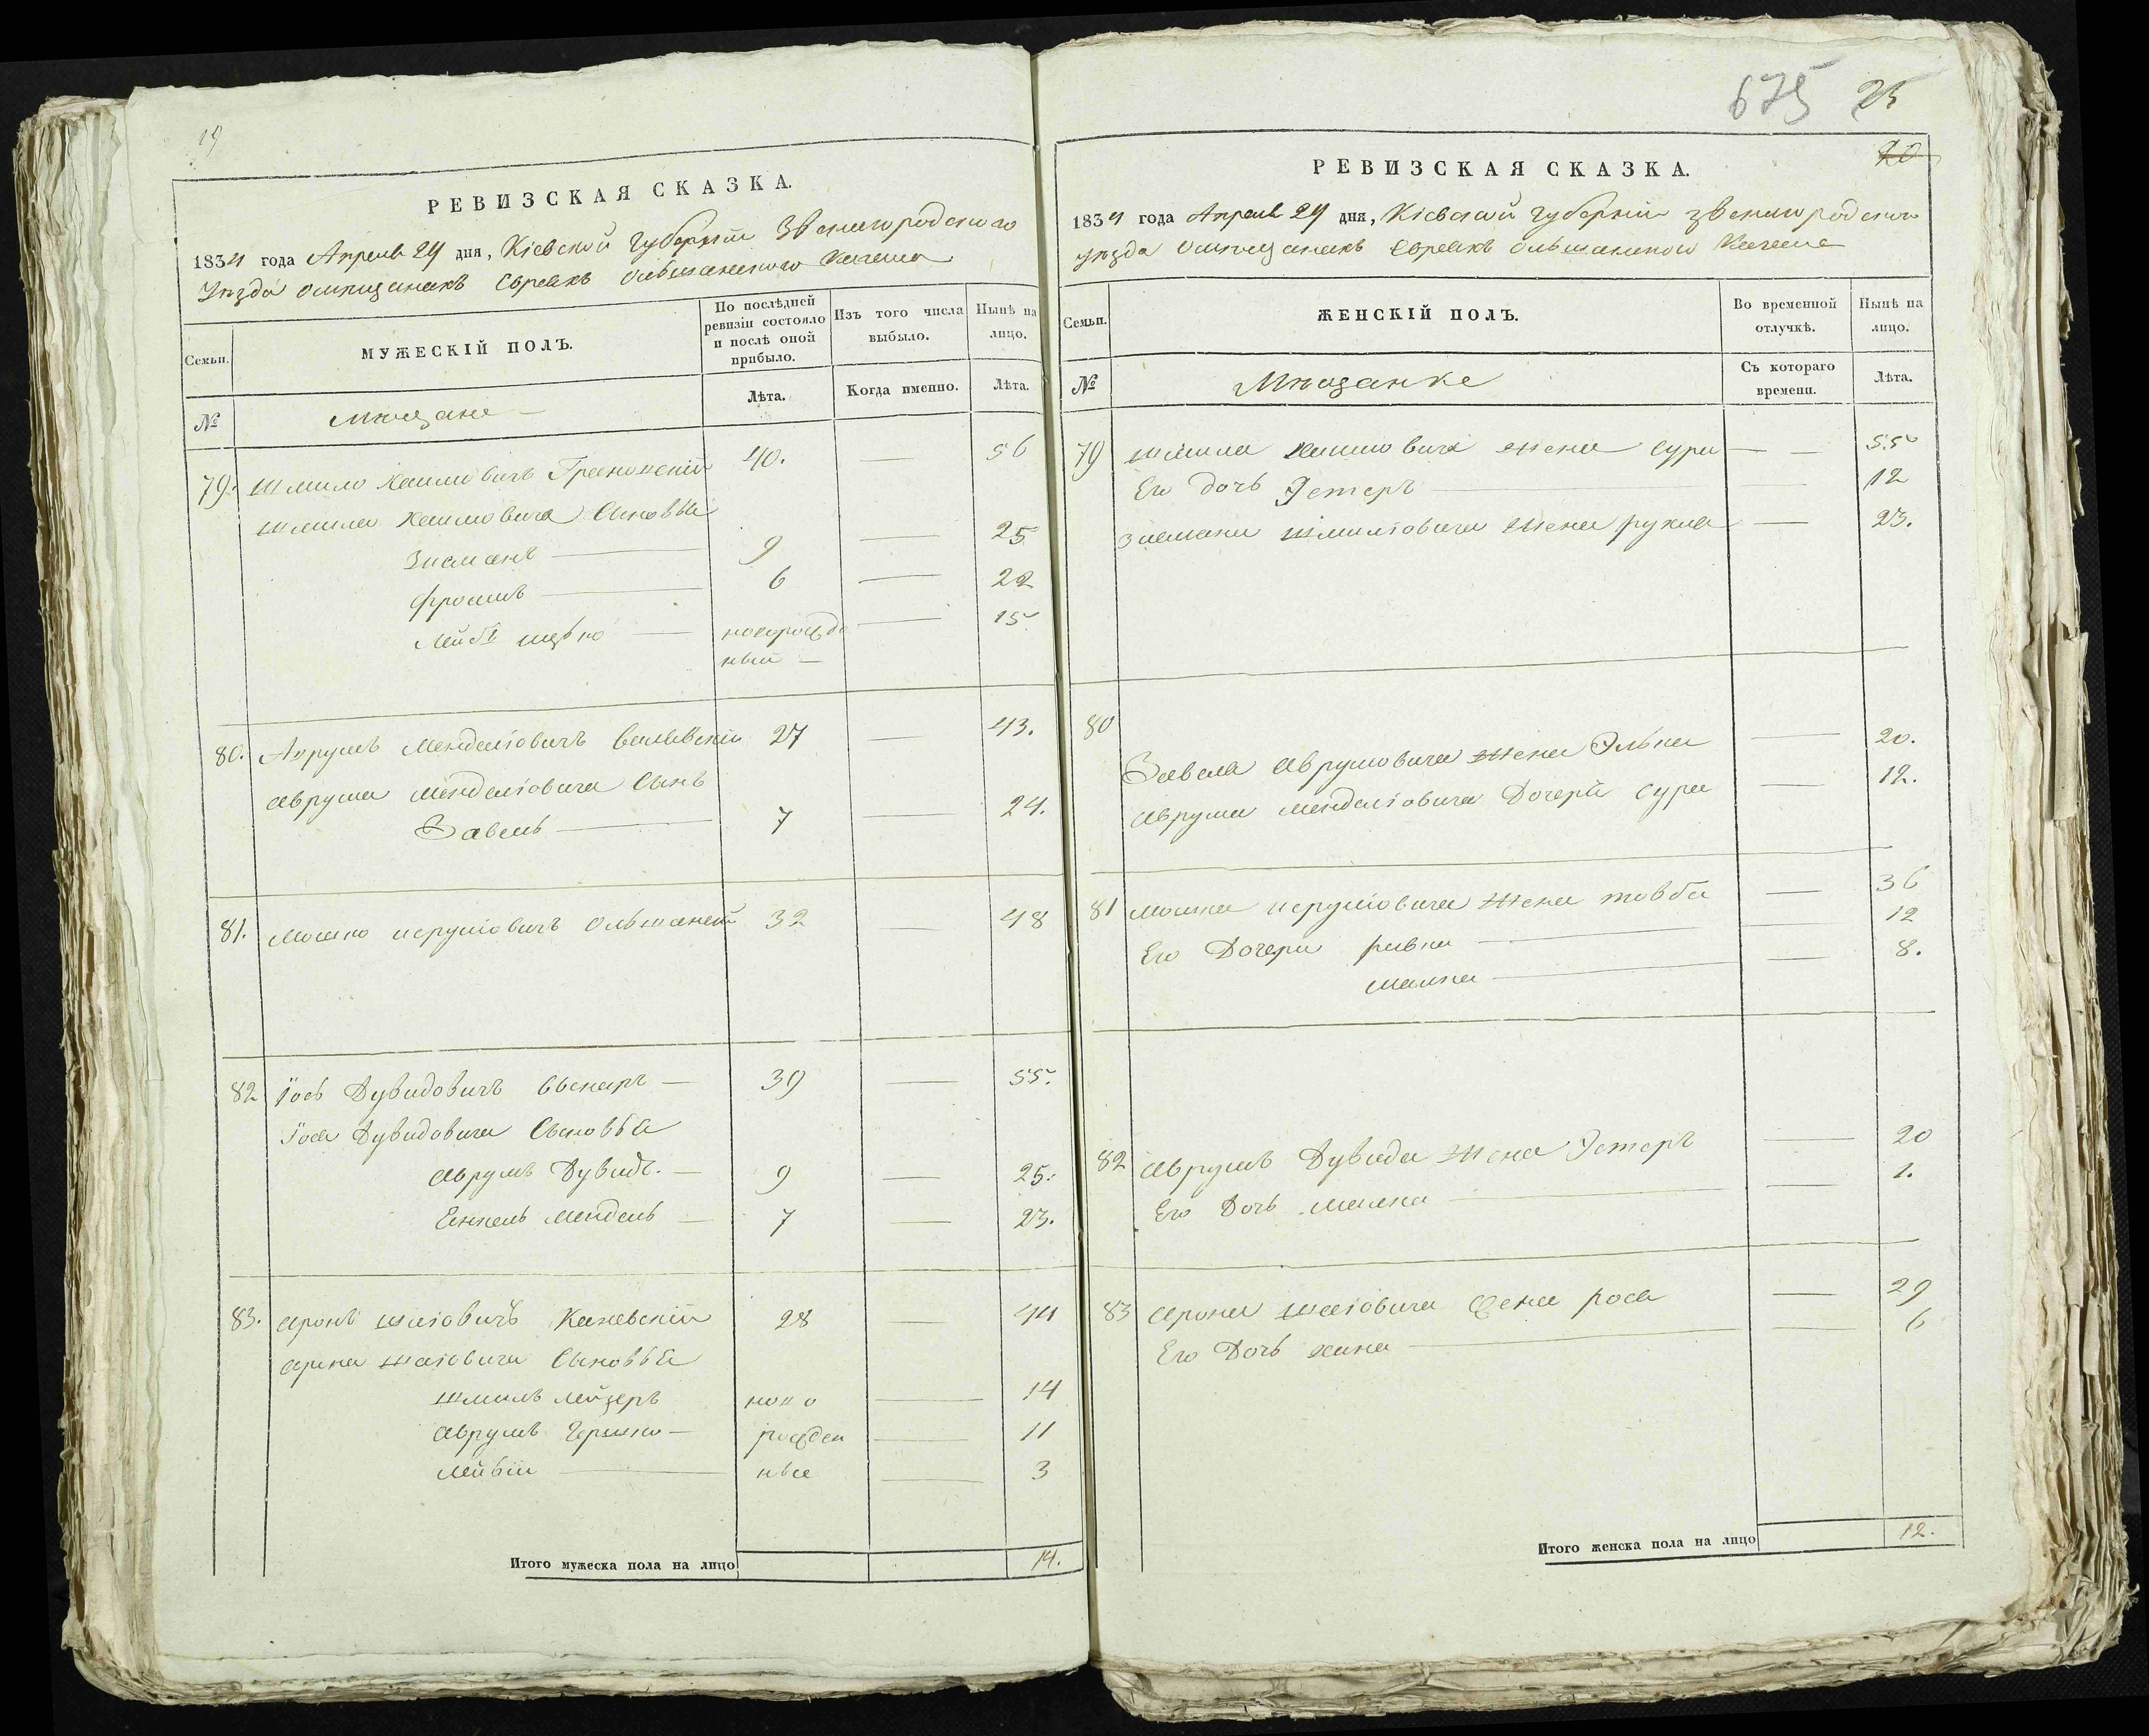 19
РЕВИЗСКАЯ СКАЗКА.
1834 года Апреля 24 дня, Кіевской Губерніи Звенигородского
Уезда о мещанахъ Евреахъ Ольшанского Кагала
Семьи.
МУЖЕСКІЙ ПОЛЪ.
По послѣдней ревизіи состояло и послѣ оной прибыло.
Изъ того числа выбыло.
Нынѣ на лицо.
№
мещане
Лѣта.
Когда именно.
Лѣта.
79. Шмило Хаимовичъ 40. — 56
Шмила Хаимовича Сыновья
Зисманъ — 9 — 25
Фроимъ — 6 — 22
Лейбъ — новорожде — 15
ный —
80. Аврумъ Менделіовичъ 27 — 43.
Аврума Менделіовича Сынъ
Завель — 7 — 24.
81. Мошко Иерушовичъ Ольшанскій 32 — 48
82 Іось Дувидовичъ — 39 — 55.
Іося Дувидовича Сыновья
Аврумъ Дувидъ. — 9 — 25.
Енкель Мендель — 7 — 23.
83. Аронъ Шаіовичъ Каневскій 28 — 44
Арона Шаіовича Сыновья
Шмиль Лейзеръ ново — 14
Аврумъ Гершко — рожден — 11
— ные — 3
Итого мужеска пола на лицо 14.
675 25
20
РЕВИЗСКАЯ СКАЗКА.
1834 года Апреля 24 дня, Кіевской Губерніи Звенигородского
Уезда о мещанахъ Евреахъ Ольшанского Кагала
Семьи.
ЖЕНСКІЙ ПОЛЪ.
Во временной отлучкѣ.
Нынѣ на лицо.
№
Мещанке
Съ котораго времени.
Лѣта.
79 Шмила Хаимовича жена Сура — — 55
Его дочь Эстеръ — — 12
Зисмана Шмиліовича жена Рухля — 23.
80
Завеля Аврумовича жена Элька — 20.
Аврума Менделіовича Дочеръ Сура — 12.
81 Мошка Иерушовича жена Товба — 36
Его Дочери Ривка — — 12
Малка — — 8.
82 Аврумъ Дувида жена Эстеръ — 20
Его Дочь Малка — — 1.
83 Арона Шаіовича жена Рося — 29
Его Дочь Хана — — 6
Итого женска пола на лицо 12.